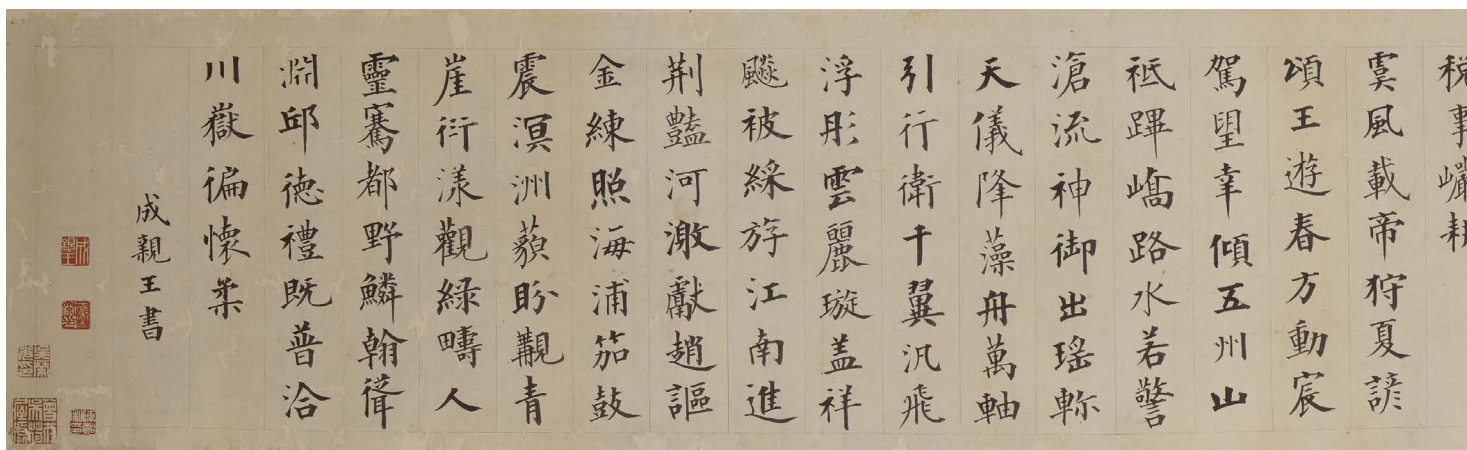 稅事巖耕
虞風載帝狩夏諺
頌王遊春方動宸
駕望幸傾五州山
祗蹕嶠路水若警
滄流神御出瑤軫
天儀降藻舟萬軸
引行衛千翼汎飛
浮彤雲麗璇盖祥
飈被綵斿江南進
荆豔河激獻趙謳
金練照海浦笳鼓
震溟洲藐盼覯青
崖衍漾觀綠疇人
靈騫都野鱗翰聳
淵邱德禮既普洽
川嶽徧懷柔
成親王書